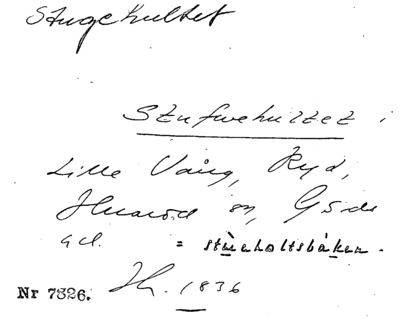 Stugekultet
Stufwehultet i
Lille Vång, Ryd,
Hvaröd sn, Gärds
hd. = stùehòltsbàken.
Nr 7326. Jh. 1836